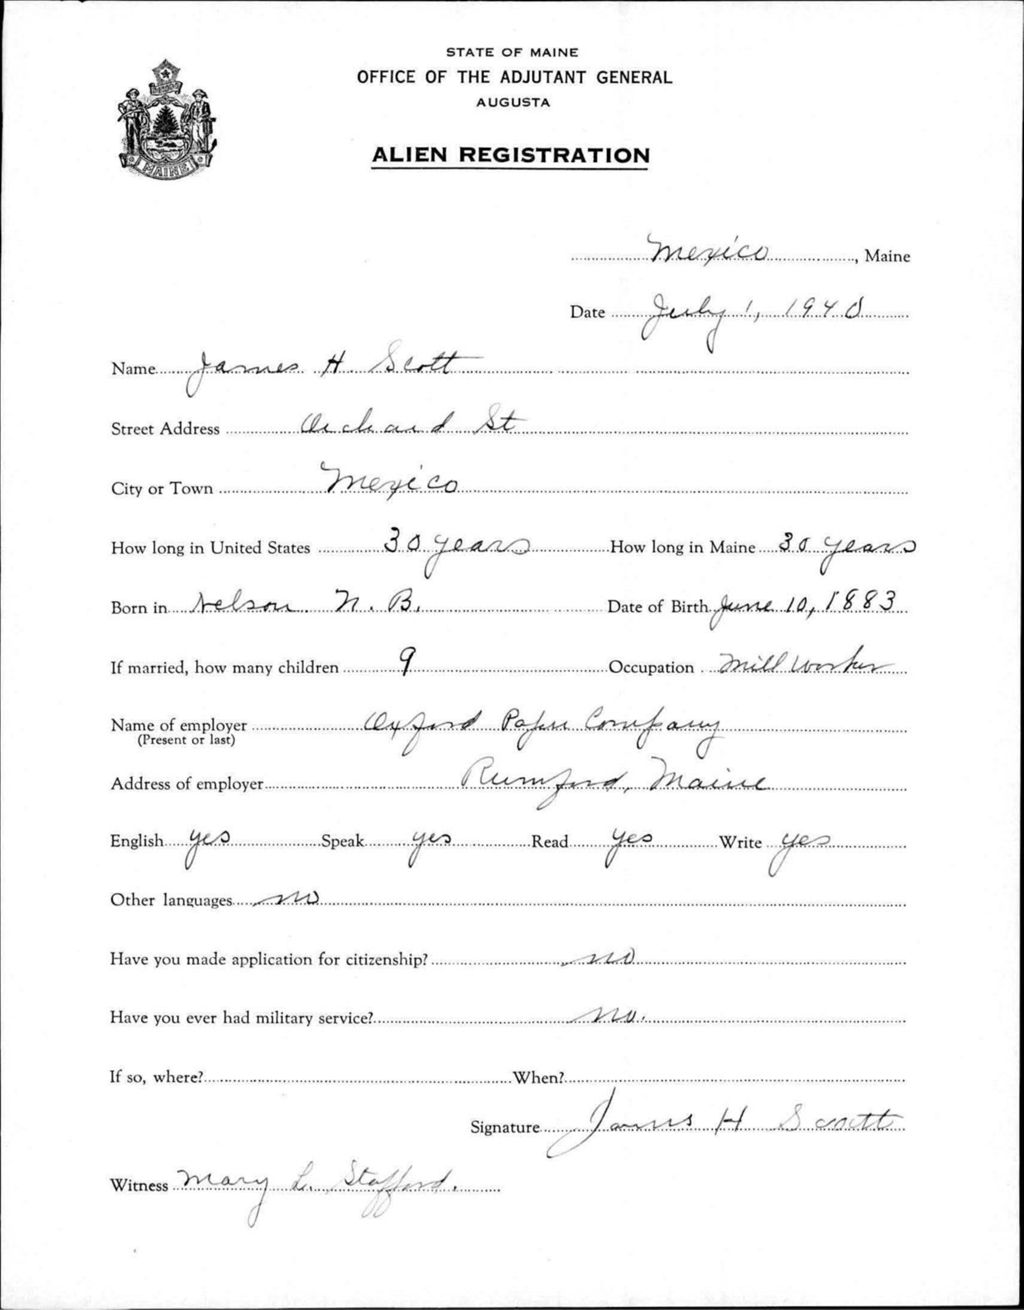 STATE OF MAINE
OFFICE OF THE ADJUTANT GENERAL
AUGUSTA
ALIEN REGISTRATION
MAINE
Mexico, Maine
Date July 1, 1940
Name James H. Scott
Street Address Orchard St
City or Town Mexico
How long in United States 30 years How long in Maine 30 years
Born in Nelson N. B. Date of Birth June 10, 1883
If married, how many children 9 Occupation Mill Worker
Name of employer Oxford Paper Company
(Present or last)
Address of employer Rumford, Maine
English yes Speak yes Read yes Write yes
Other languages no
Have you made application for citizenship? no
Have you ever had military service? no.
If so, where? When?
Signature James H Scott
Witness Mary L. Stafford.